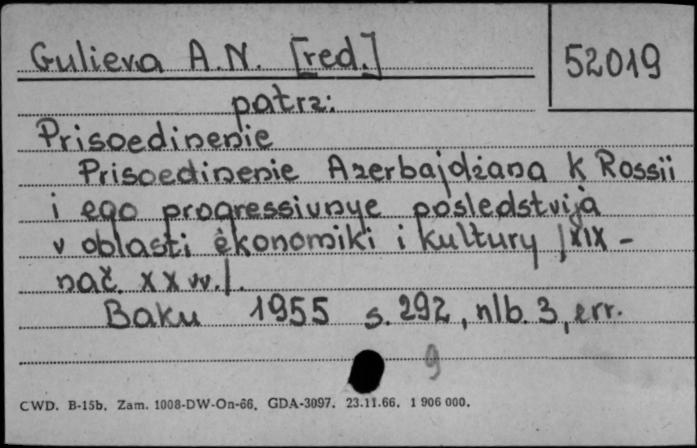 Gulieva A.N. [red.]
52019
patrz:
Prisoedinenie
Prisoedinenie Azerbajdžana k Rossii
i ego progressivnye posledstvija
v oblasti èkonomiki i kultury /XIX -
nač. XX vv./.
Baku 1955 s. 292, nlb. 3, err.
9
CWD. B-15b. Zam. 1008-DW-On-66. GDA-3097. 23.11.66. 1 906 000.